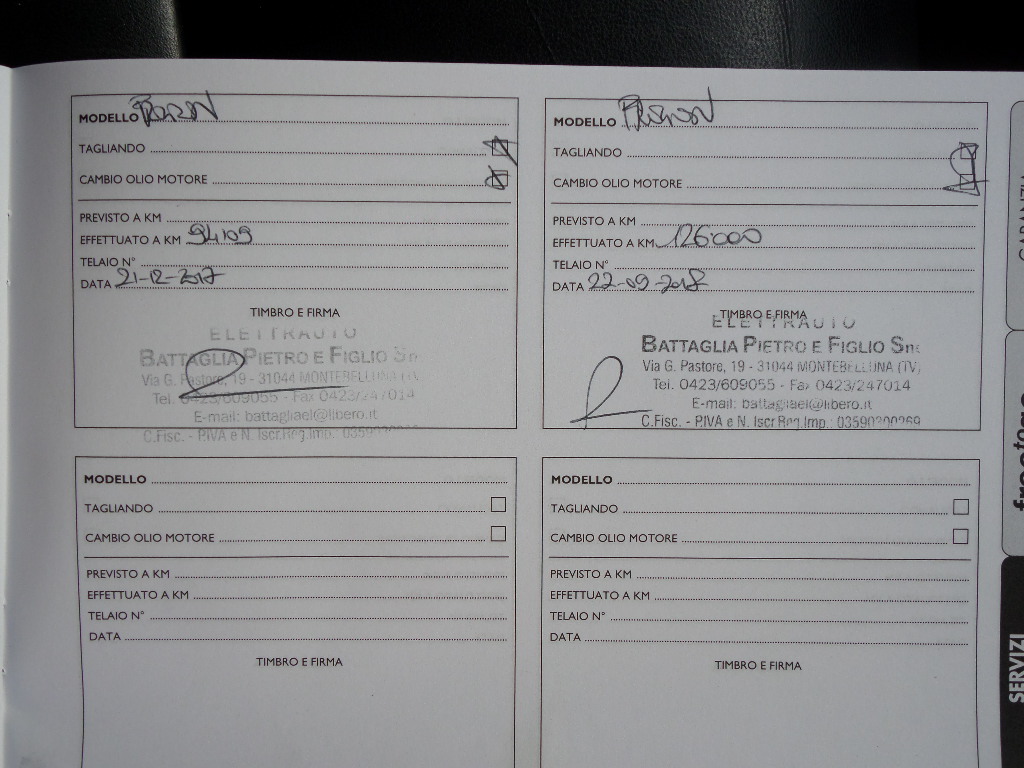 MODELLO
TAGLIANDO
CAMBIO OLIO MOTORE
PREVISTO A KM
EFFETTUATO A KM 94109
TELAIO N°
DATA 21-12-2017
TIMBRO E FIRMA
ELETTRAUTO
BATTAGLIA PIETRO E FIGLIO Sn
Via G. Pastore, 19 - 31044 MONTEBELLUNA (TV)
Tel. 0423/609055 - Fax 0423/247014
E-mail: battagliael@libero.it
C.Fisc. - P.IVA e N. Iscr.Reg.Imp.: 03590
MODELLO
TAGLIANDO
CAMBIO OLIO MOTORE
PREVISTO A KM
EFFETTUATO A KM 126.000
TELAIO N°
DATA 22-09-2018
TIMBRO E FIRMA
ELETTRAUTO
BATTAGLIA PIETRO E FIGLIO Snc
Via G. Pastore, 19 - 31044 MONTEBELLUNA (TV)
Tel. 0423/609055 - Fax 0423/247014
E-mail: battagliael@libero.it
C.Fisc. - P.IVA e N. Iscr.Reg.Imp.: 03590200269
MODELLO
TAGLIANDO
CAMBIO OLIO MOTORE
PREVISTO A KM
EFFETTUATO A KM
TELAIO N°
DATA
TIMBRO E FIRMA
MODELLO
TAGLIANDO
CAMBIO OLIO MOTORE
PREVISTO A KM
EFFETTUATO A KM
TELAIO N°
DATA
TIMBRO E FIRMA
SERVIZI